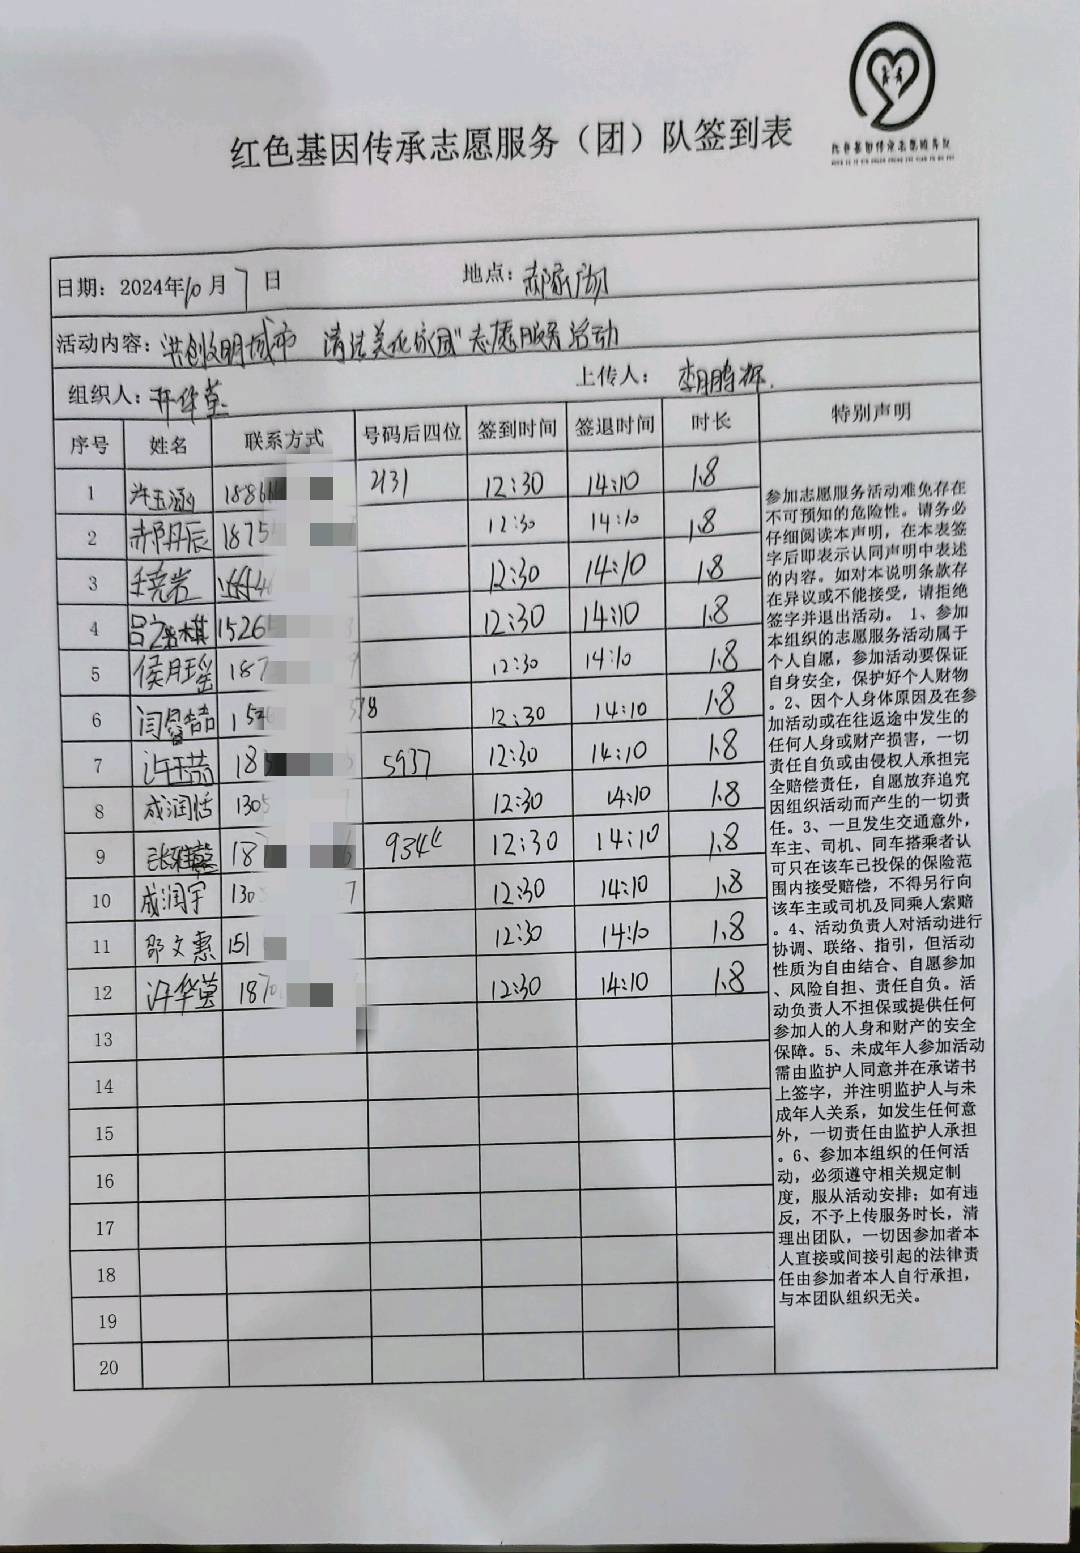 红色基因传承志愿服务（团）队签到表
红色基因传承志愿服务队
日期：2024年10月7日 地点：郝家沟
活动内容：共创文明城市 清洁美化家园"志愿服务活动
组织人：许华莹 上传人：李鹏辉.
序号 姓名 联系方式 号码后四位 签到时间 签退时间 时长 特别声明
1 许玉涵 188 2131 12:30 14:10 1.8
2 郝丹辰 1875 12:30 14:10 1.8
3 12:30 14:10 1.8
4 15265 12:30 14:10 1.8
5 侯月瑶 187 12:30 14:10 1.8
6 闫 78 12:30 14:10 1.8
7 许玉 18 5937 12:30 14:10 1.8
8 成润恬 1305 12:30 14:10 1.8
9 张雅 18 934 12:30 14:10 1.8
10 成润宇 130 7 12:30 14:10 1.8
11 邵文惠 151 12:30 14:10 1.8
12 许华莹 187 12:30 14:10 1.8
13
14
15
16
17
18
19
20
参加志愿服务活动难免存在
不可预知的危险性。请务必
仔细阅读本声明，在本表签
字后即表示认同声明中表述
的内容。如对本说明条款存
在异议或不能接受，请拒绝
签字并退出活动。 1、参加
本组织的志愿服务活动属于
个人自愿，参加活动要保证
自身安全，保护好个人财物
。2、因个人身体原因及在参
加活动或在往返途中发生的
任何人身或财产损害，一切
责任自负或由侵权人承担完
全赔偿责任，自愿放弃追究
因组织活动而产生的一切责
任。3、一旦发生交通意外，
车主、司机、同车搭乘者认
可只在该车已投保的保险范
围内接受赔偿，不得另行向
该车主或司机及同乘人索赔
。4、活动负责人对活动进行
协调、联络、指引，但活动
性质为自由结合、自愿参加
、风险自担、责任自负。活
动负责人不担保或提供任何
参加人的人身和财产的安全
保障。5、未成年人参加活动
需由监护人同意并在承诺书
上签字，并注明监护人与未
成年人关系，如发生任何意
外，一切责任由监护人承担
。6、参加本组织的任何活
动，必须遵守相关规定制
度，服从活动安排；如有违
反，不予上传服务时长，清
理出团队，一切因参加者本
人直接或间接引起的法律责
任由参加者本人自行承担，
与本团队组织无关。